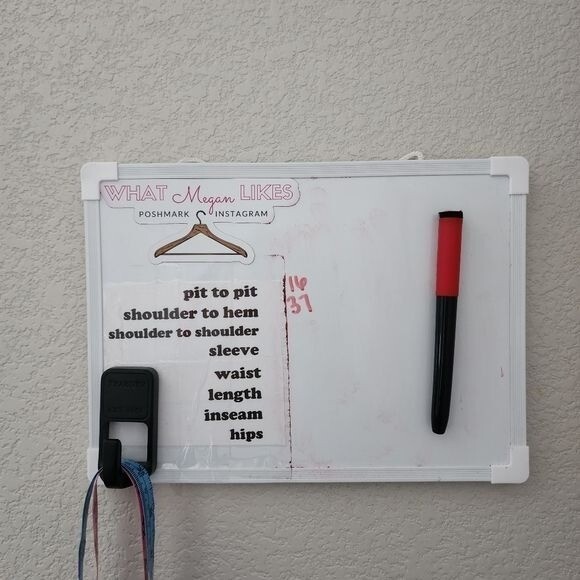 WHAT Megan LIKES
POSHMARK INSTAGRAM
pit to pit 16
shoulder to hem 37
shoulder to shoulder
sleeve
waist
length
inseam
hips